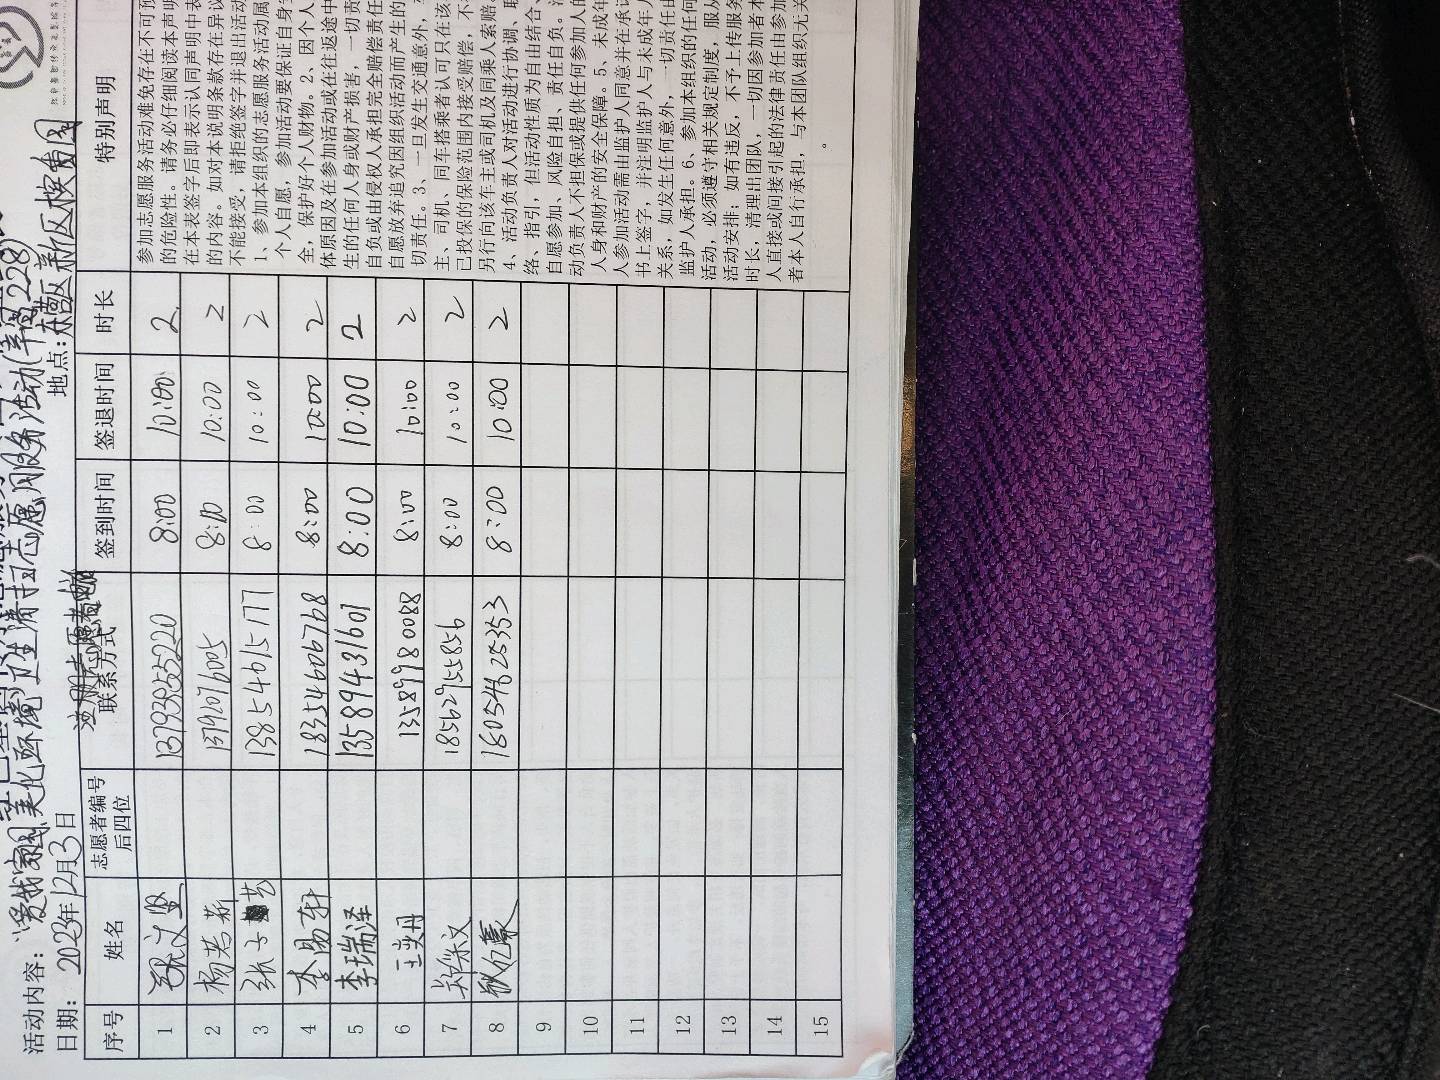 活动内容：“爱我家园，美化环境”卫生清扫志愿服务活动(228)
日期：2023年12月3日
地点：东营区新区
序号 姓名 志愿者编号后四位 联系方式 签到时间 签退时间 时长 特别声明
1 13793855220 8:00 10:00 2
2 杨若新 8:00 10:00 2
3 张子艺 13854615177 8:00 10:00 2
4 李易轩 18354606768 8:00 10:00 2
5 李瑞泽 13589431601 8:00 10:00 2
6 王奕丹 13589980088 8:00 10:00 2
7 郑永文 18562955856 8:00 10:00 2
8 18054625353 8:00 10:00 2
9
10
11
12
13
14
15
参加志愿服务活动难免存在不可预
的危险性。请务必仔细阅读本声明
在本表签字后即表示认同声明中表
的内容。如对本说明条款存在异议
不能接受，请拒绝签字并退出活动
1、参加本组织的志愿服务活动属
个人自愿，参加活动要保证自身
全，保护好个人财物。2、因个人
体原因及在参加活动或在往返途中
生的任何人身或财产损害，一切责
自负或由侵权人承担完全赔偿责任
自愿放弃追究因组织活动而产生的
切责任。3、一旦发生交通意外，
主、司机、同车搭乘者认可只在该
已投保的保险范围内接受赔偿，不
另行向该车主或司机及同乘人索赔
4、活动负责人对活动进行协调、联
络、指引，但活动性质为自由结合、
自愿参加、风险自担、责任自负。
动负责人不担保或提供任何参加人的
人身和财产的安全保障。5、未成年
人参加活动需由监护人同意并在承诺
书上签字，并注明监护人与未成年人
关系，如发生任何意外，一切责任由
监护人承担。6、参加本组织的任何
活动，必须遵守相关规定制度，服从
活动安排；如有违反，不予上传服务
时长，清理出团队，一切因参加者本
人直接或间接引起的法律责任由参加
者本人自行承担，与本团队组织无关
。